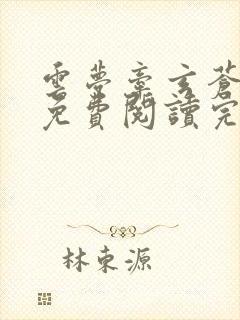 雲夢章玄蒼
免費閱讀完
林東源